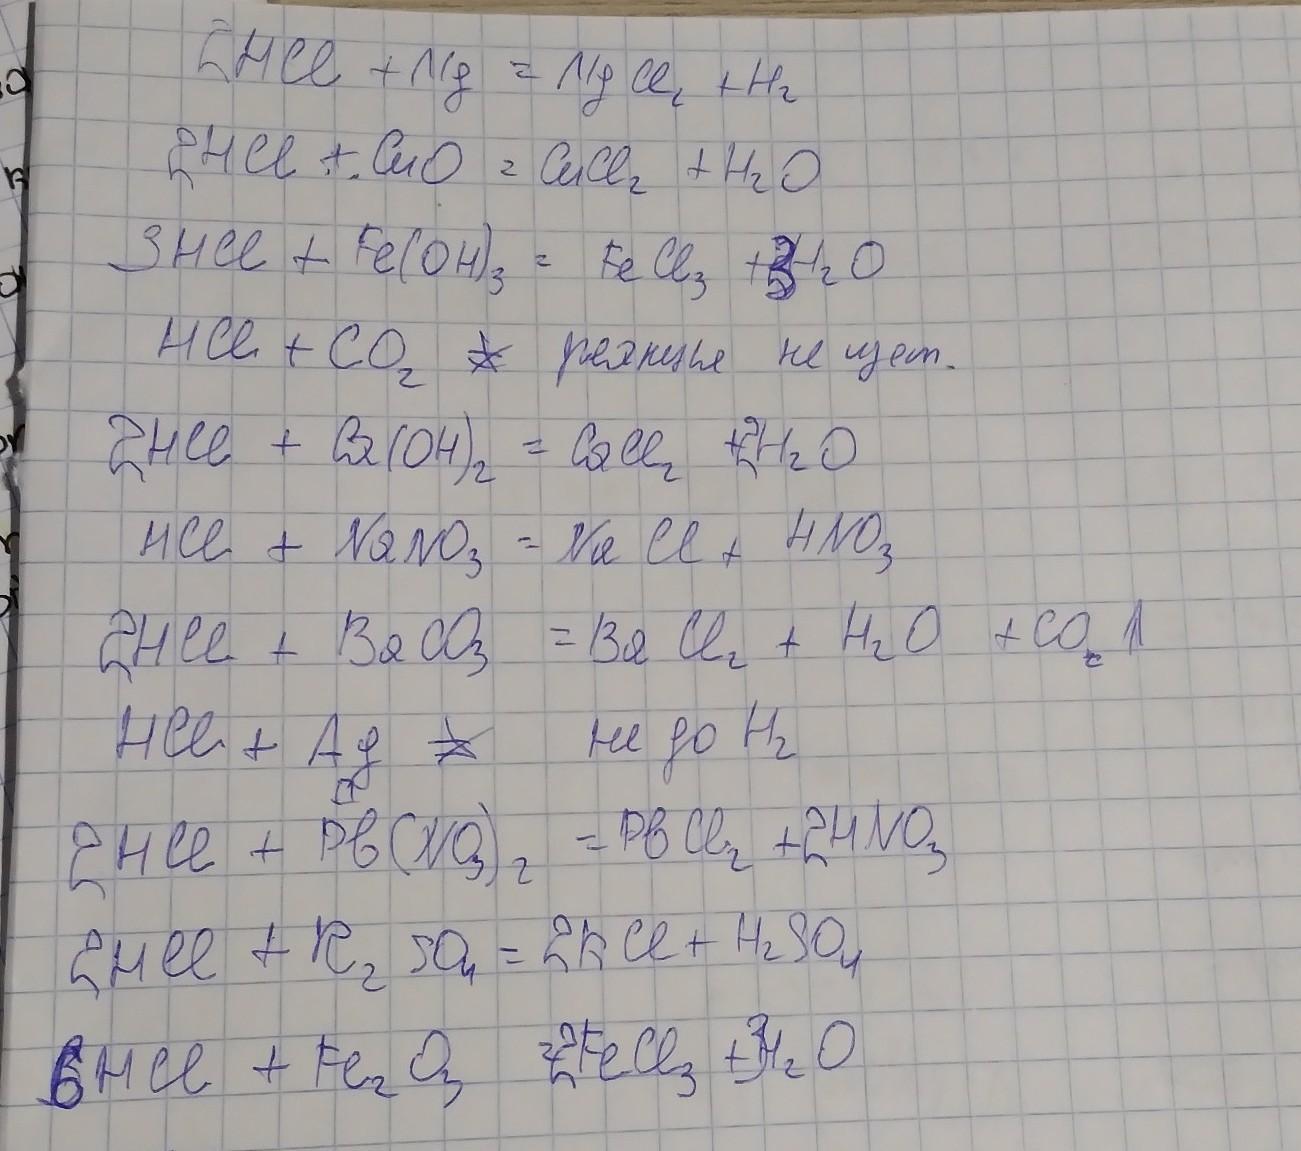 2HCl + Mg = MgCl₂ + H₂
2HCl + CuO = CuCl₂ + H₂O
3HCl + Fe(OH)₃ = FeCl₃ + 3H₂O
HCl + CO₂ ≠ реакция не идет.
2HCl + Ca(OH)₂ = CaCl₂ + 2H₂O
HCl + NaNO₃ = NaCl + HNO₃
2HCl + BaCO₃ = BaCl₂ + H₂O + CO₂ ↑
HCl + Ag ≠ не до H₂
2HCl + Pb(NO₃)₂ = PbCl₂ + 2HNO₃
2HCl + K₂SO₄ = 2KCl + H₂SO₄
6HCl + Fe₂O₃ = 2FeCl₃ + 3H₂O